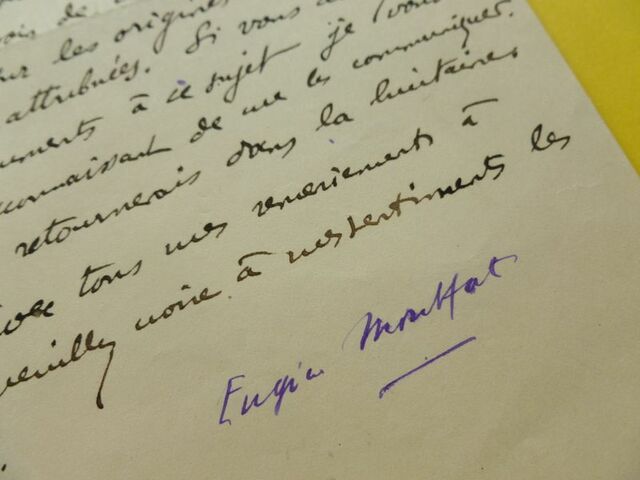 ois de
ur les origines
attribuées. Si vous a
uments à ce sujet je vous
connaissant de me les communiquer.
retournerais dans la huitaine
vec tous mes remerciements à
veuillez croire à mes sentiments les
Eugène Montfort